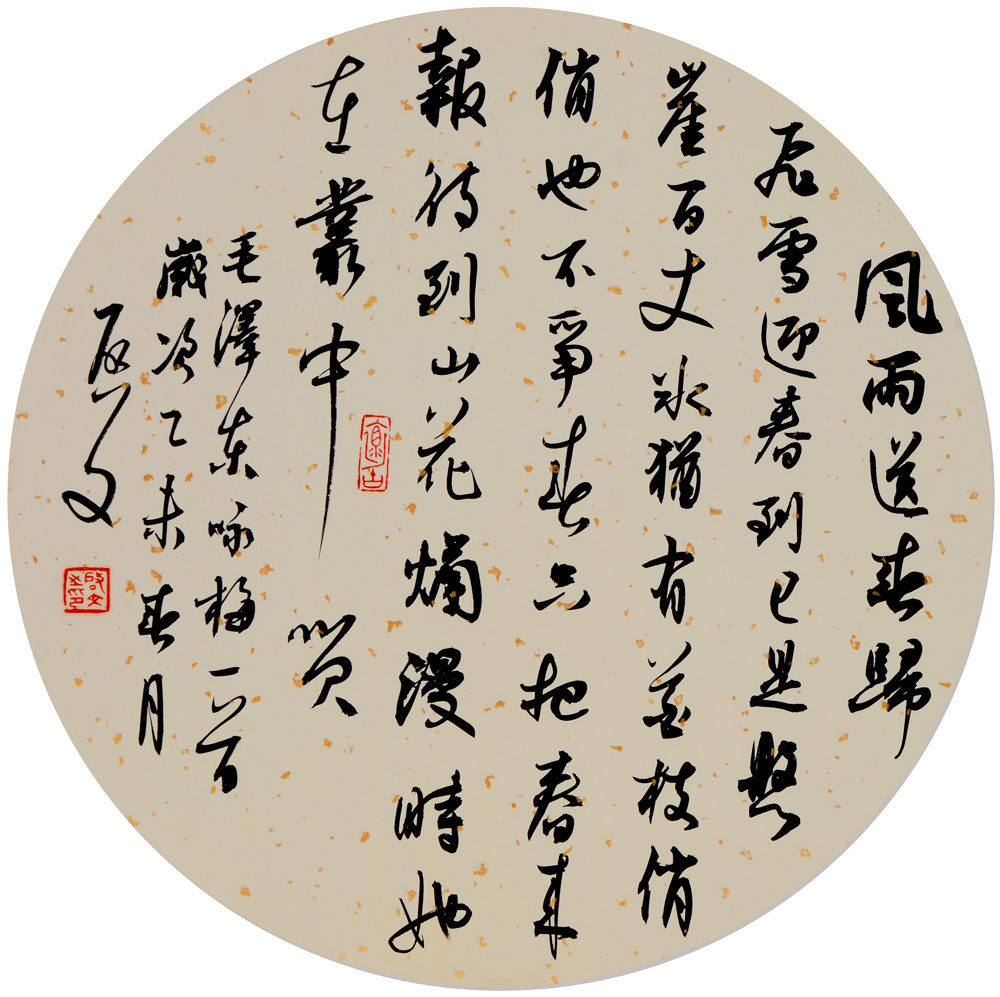 風雨送春歸
飛雪迎春到已是懸
崖百丈冰猶有花枝俏
俏也不爭春只把春來
報待到山花爛漫時她
在叢中笑
毛澤東咏梅一首
歲次乙未春月
启文